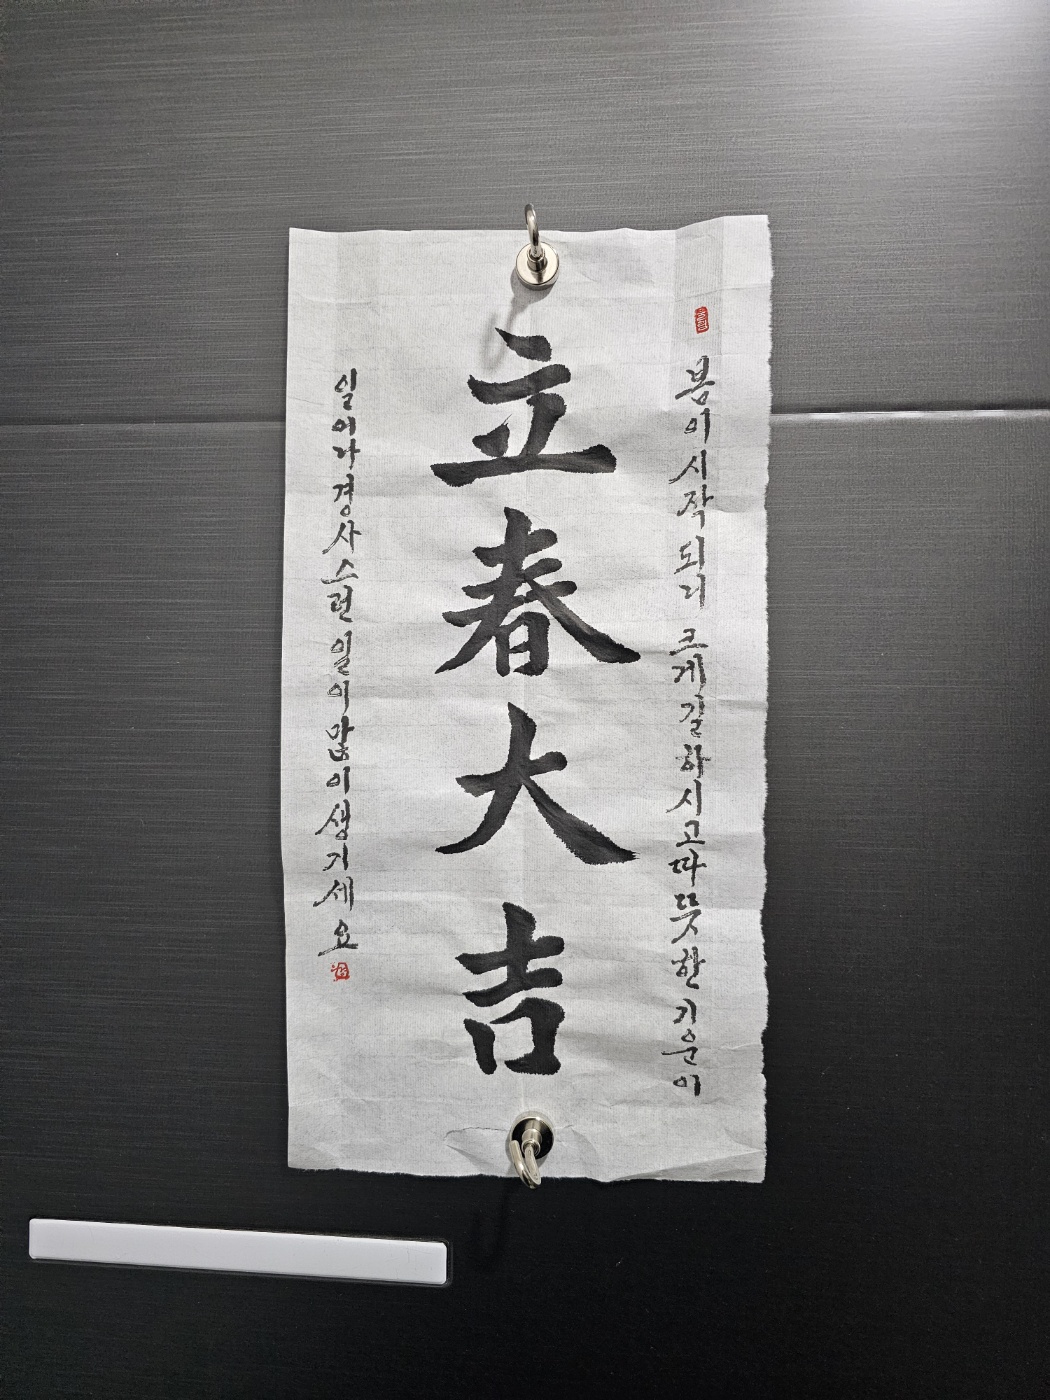 봄이 시작되니 크게 길하시고 따뜻한 기운이
立春大吉
일어나 경사스런 일이 많이 생기세요